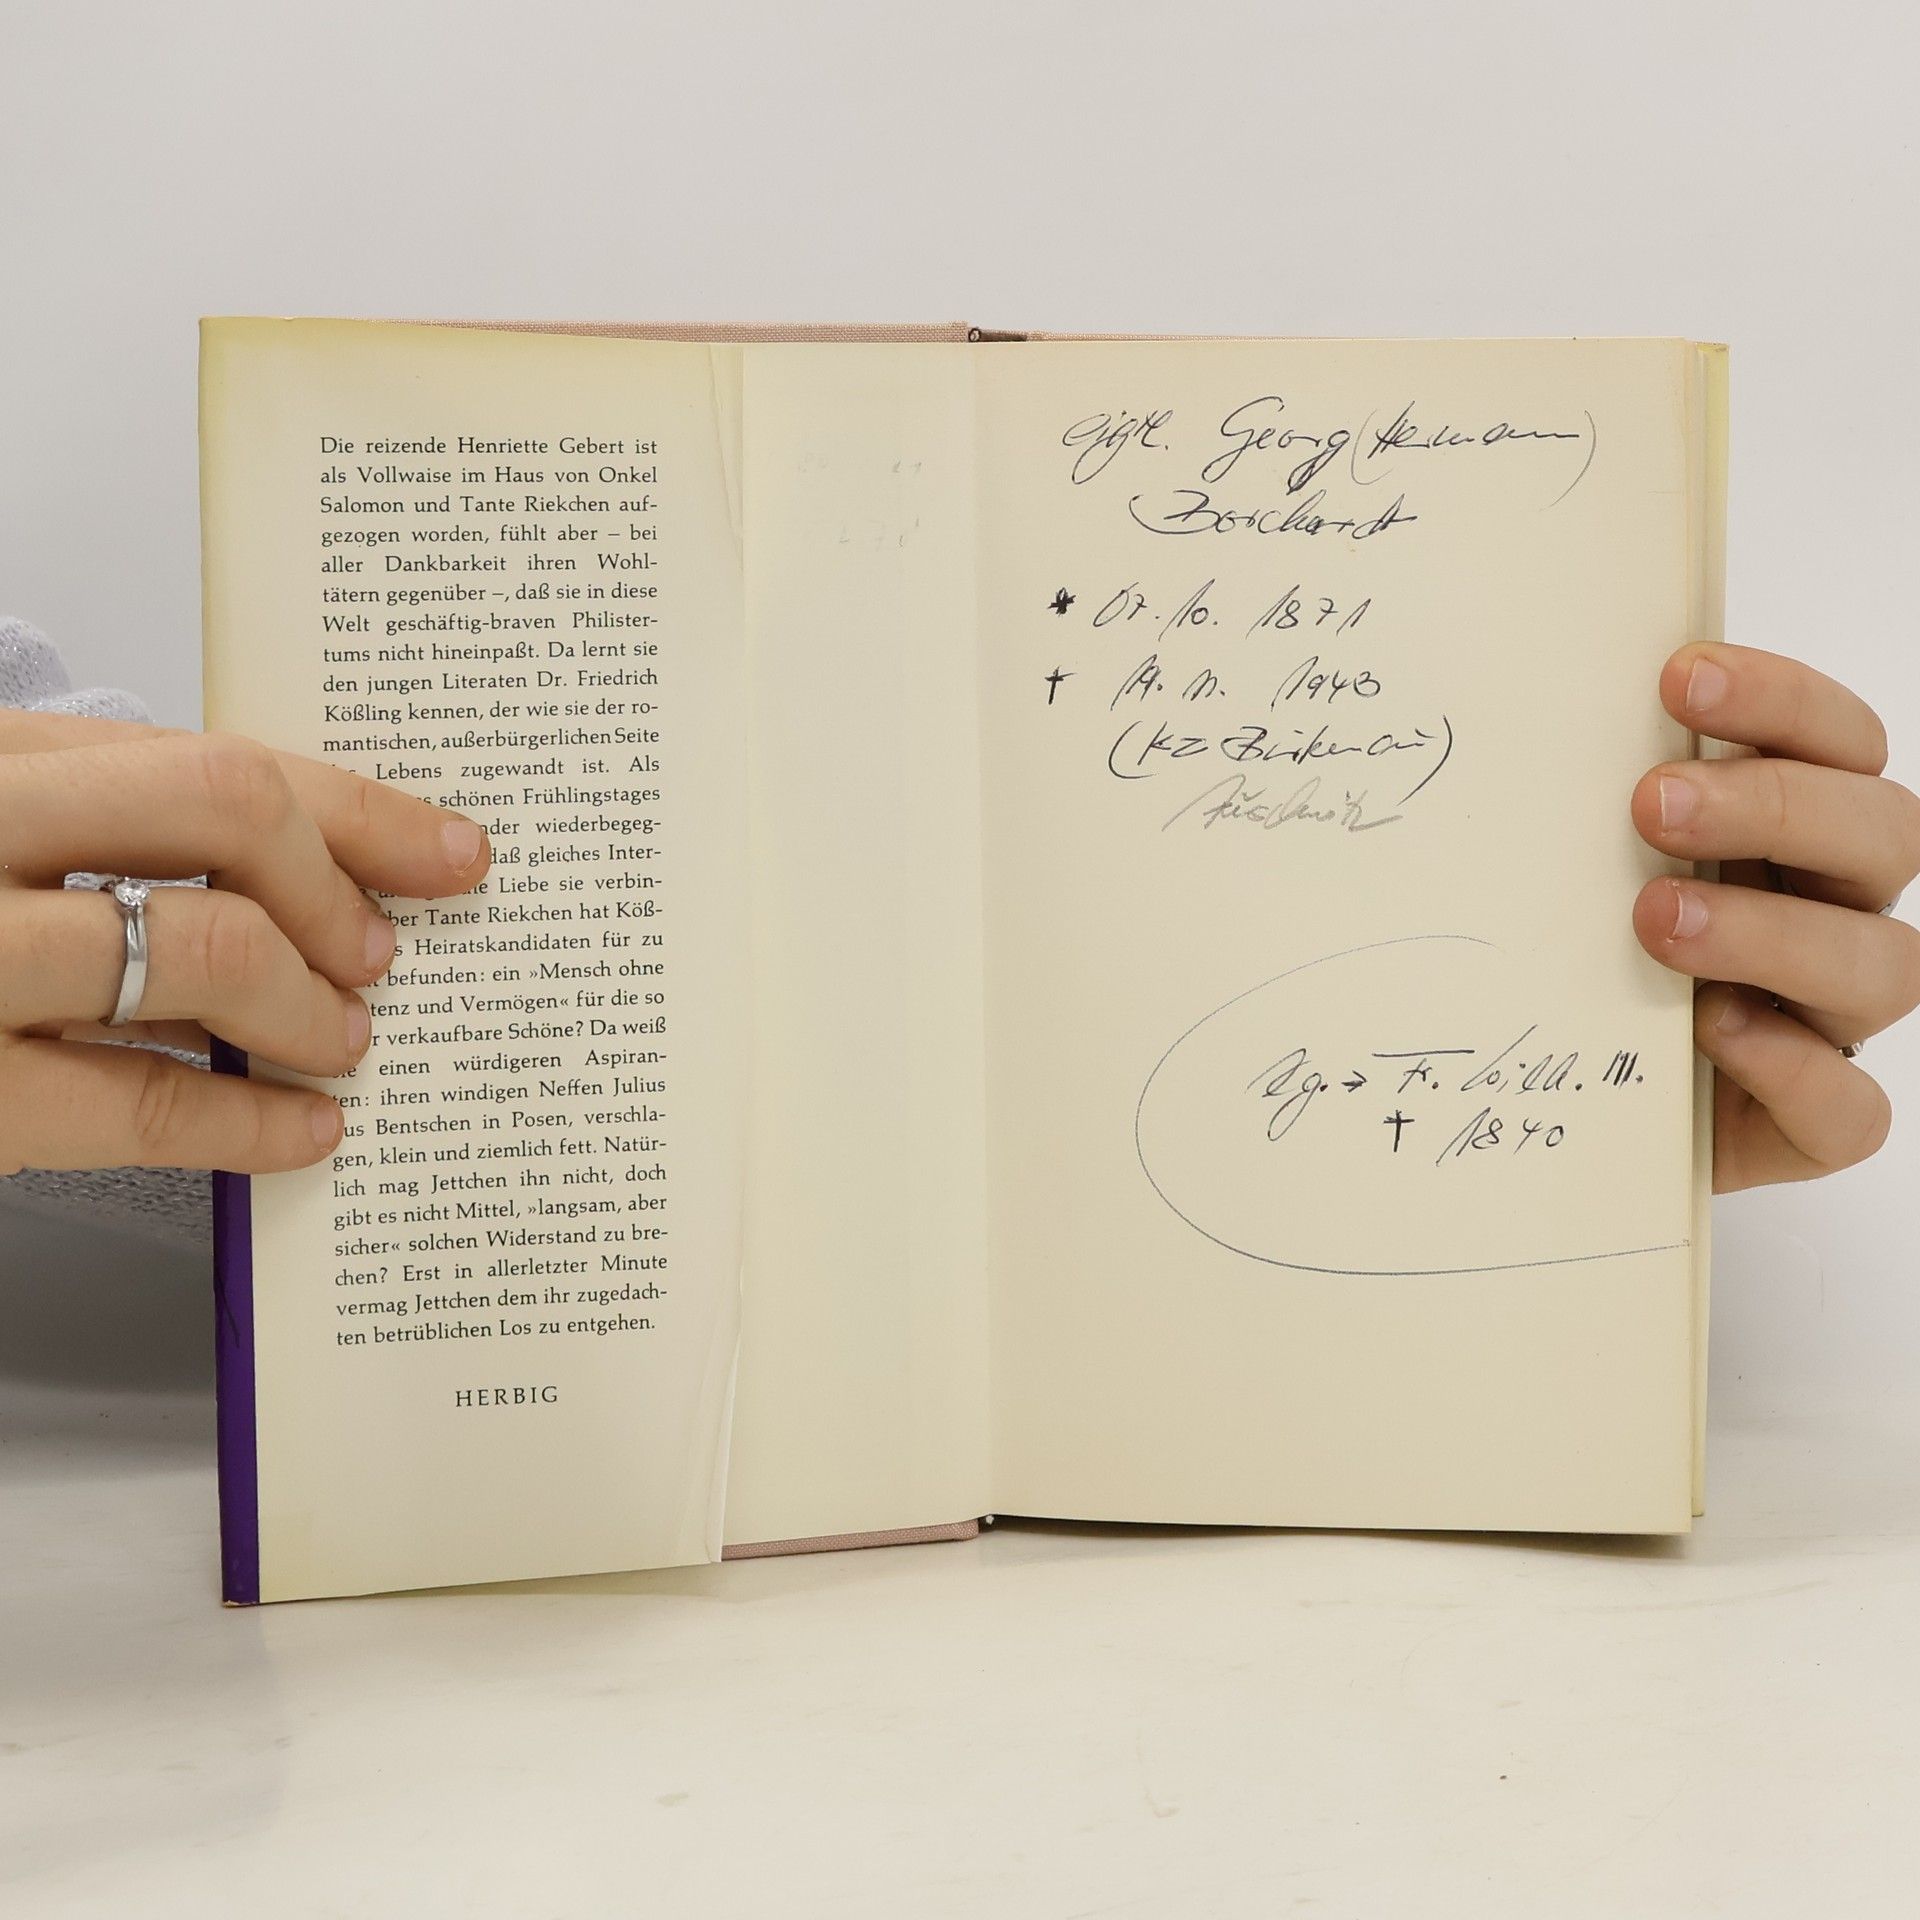 Die reizende Henriette Gebert ist
als Vollwaise im Haus von Onkel
Salomon und Tante Riekchen auf-
gezogen worden, fühlt aber – bei
aller Dankbarkeit ihren Wohl-
tätern gegenüber –, daß sie in diese
Welt geschäftig-braven Philister-
tums nicht hineinpaßt. Da lernt sie
den jungen Literaten Dr. Friedrich
Kößling kennen, der wie sie der ro-
mantischen, außerbürgerlichen Seite
Lebens zugewandt ist. Als
schönen Frühlingstages
wiederbegeg-
daß gleiches Inter-
Liebe sie verbin-
Tante Riekchen hat Köß-
Heiratskandidaten für zu
befunden: ein »Mensch ohne
tenz und Vermögen« für die so
r verkaufbare Schöne? Da weiß
einen würdigeren Aspiran-
ten: ihren windigen Neffen Julius
us Bentschen in Posen, verschla-
gen, klein und ziemlich fett. Natür-
lich mag Jettchen ihn nicht, doch
gibt es nicht Mittel, »langsam, aber
sicher« solchen Widerstand zu bre-
chen? Erst in allerletzter Minute
vermag Jettchen dem ihr zugedach-
ten betrüblichen Los zu entgehen.
HERBIG
eigtl. Georg (Hermann)
Borchardt
* 07. 10. 1871
† 19. 11. 1943
(KZ Birkenau)
Auschwitz
Fr. Wilh. III.
† 1840